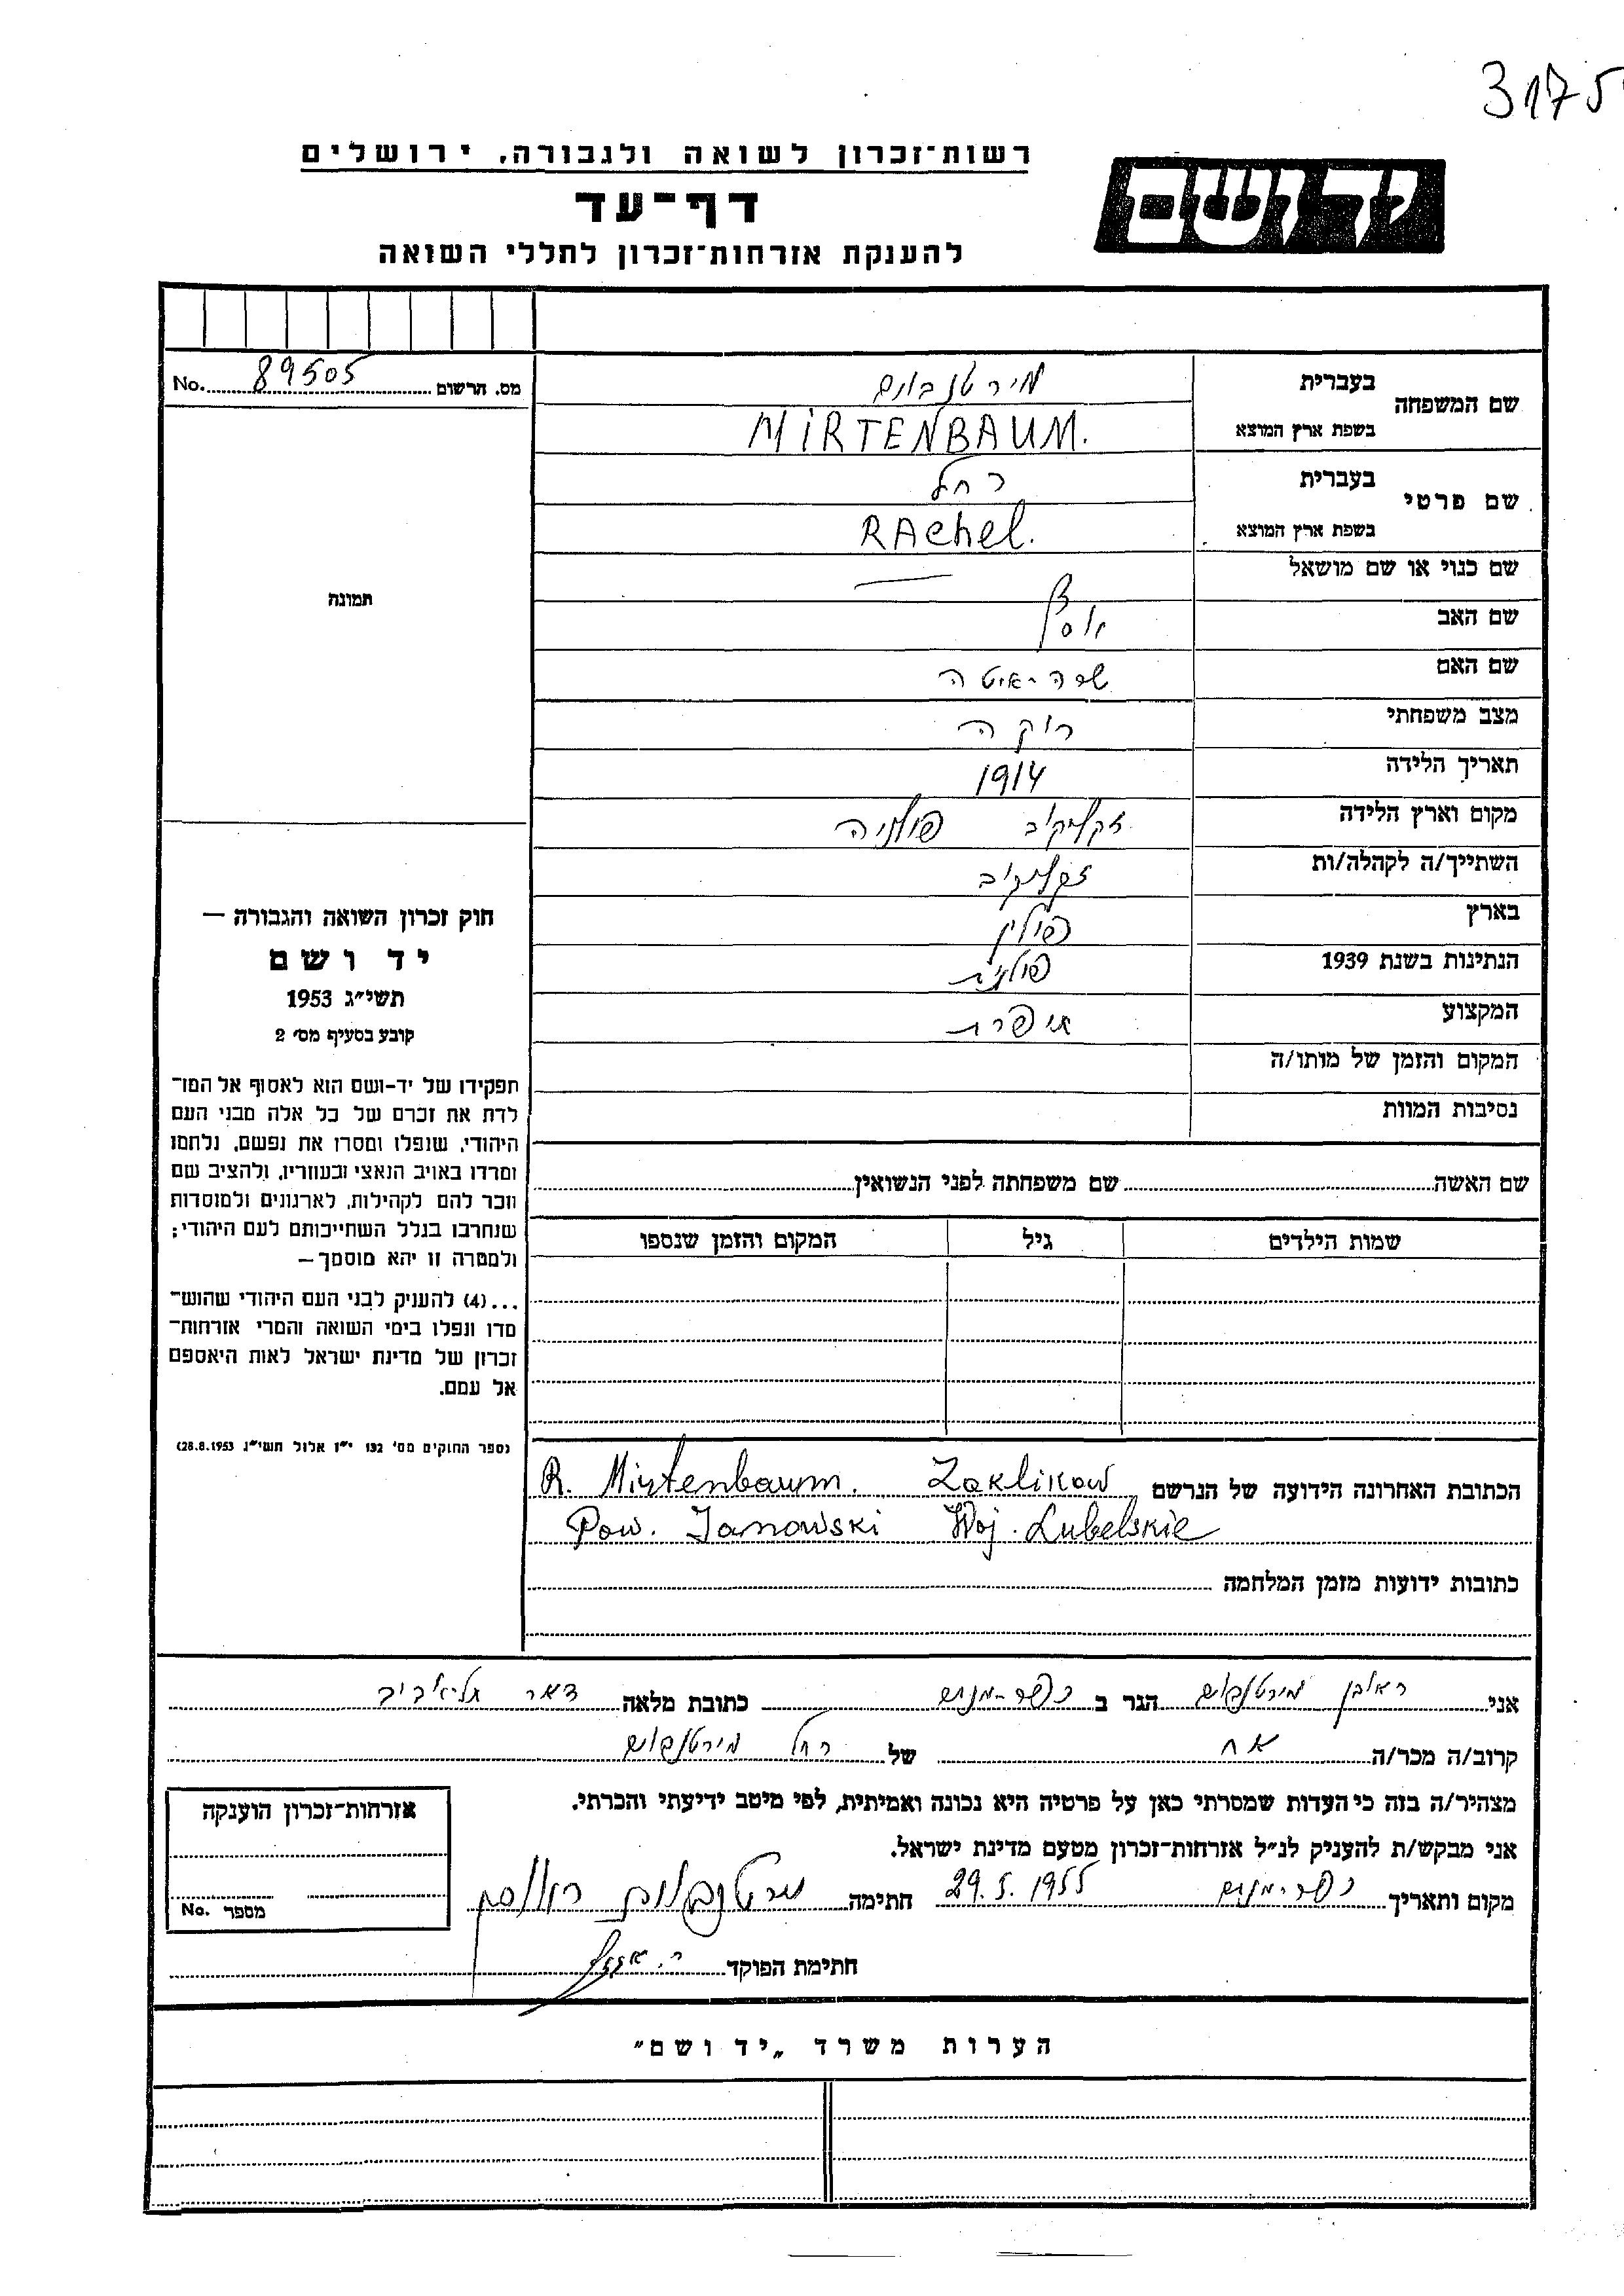 3175
רשות־זכרון לשואה ולגבורה, ירושלים
יד ושם
דף־עד
להענקת אזרחות־זכרון לחללי השואה
No. 89505 מס. הרשום
שם המשפחה
בעברית מירטנבוים
בשפת ארץ המוצא MIRTENBAUM.
שם פרטי
בעברית רחל
בשפת ארץ המוצא RAchel.
שם כנוי או שם מושאל —
שם האב יוסף
שם האם שרה-איטה
מצב משפחתי רוקה
תאריך הלידה 1914
מקום וארץ הלידה זקליקוב פולניה
השתייך/ה לקהלה/ות זקליקוב
בארץ פולין
הנתינות בשנת 1939 פולנית
המקצוע תופרת
המקום והזמן של מותו/ה
נסיבות המוות
שם האשה שם משפחתה לפני הנשואין
שמות הילדים גיל המקום והזמן שנספו
הכתובת האחרונה הידועה של הנרשם R. Mirtenbaum. Zaklikow
Pow. Janowski Woj. Lubelskie
כתובות ידועות מזמן המלחמה
תמונה
חוק זכרון השואה והגבורה —
יד ושם
תשי״ג 1953
קובע בסעיף מס׳ 2
תפקידו של יד-ושם הוא לאסוף אל המו־
לדת את זכרם של כל אלה מבני העם
היהודי, שנפלו ומסרו את נפשם, נלחמו
ומרדו באויב הנאצי ובעוזריו, ולהציב שם
וזכר להם לקהילות, לארגונים ולמוסדות
שנחרבו בגלל השתייכותם לעם היהודי;
ולמטרה זו יהא מוסמך —
...(4) להעניק לבני העם היהודי שהוש־
מדו ונפלו בימי השואה והמרי אזרחות־
זכרון של מדינת ישראל לאות היאספם
אל עמם.
(ספר החוקים מס׳ 132 י״ז אלול תשי״ג 28.8.1953)
אני ראובן מירטנבוים הגר ב כפר-מנחם כתובת מלאה דאר תל-אביב
קרוב/ה מכר/ה אח של רחל מירטנבוים
מצהיר/ה בזה כי העדות שמסרתי כאן על פרטיה היא נכונה ואמיתית, לפי מיטב ידיעתי והכרתי.
אני מבקש/ת להעניק לנ״ל אזרחות־זכרון מטעם מדינת ישראל.
מקום ותאריך כפר-מנחם 29.5.1955 חתימה מירטנבוים ראובן
חתימת הפוקד
אזרחות־זכרון הוענקה
No. מספר
הערות משרד „יד ושם״